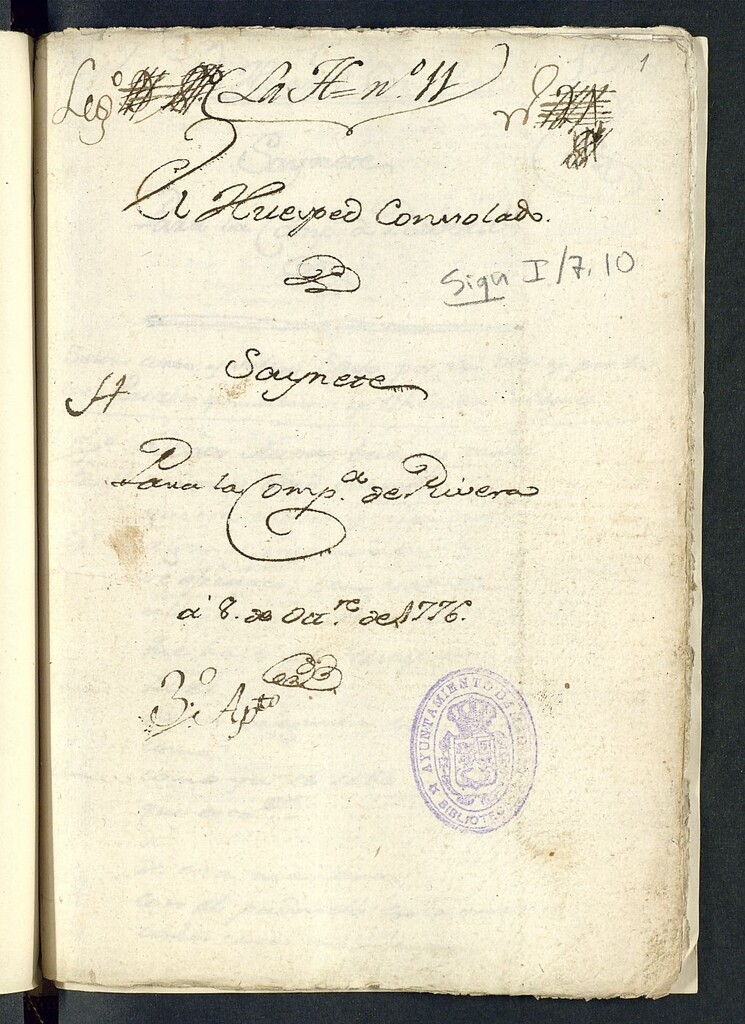 Leg.º (La H= nº. 11
1
El Huesped Consolado.
Sign I/7.10
Saynete
H
Para la Comp.ª de Rivera
a 8. de Oct.re de 1776.
3.º Apto
AYUNTAMIENTO DE MADRID
BIBLIOTECA